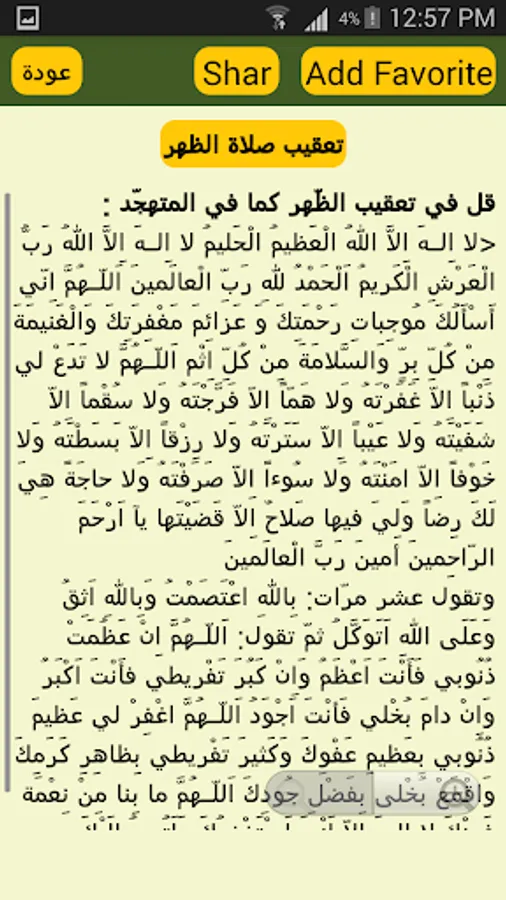 4% 12:57 PM
عودة Shar Add Favorite
تعقيب صلاة الظهر
قل في تعقيب الظّهر كما في المتهجّد :
<لا الـهَ الاَّ اللهُ الْعَظيمُ الْحَليمُ لا الـهَ الاَّ اللهُ رَبُّ
الْعَرْشِ الْكَريمُ اَلْحَمْدُ للهِ رَبِّ الْعالَمينَ اَللّـهُمَّ اِنّي
اَسْأَلُكَ مُوجِباتِ رَحْمَتِكَ وَ عَزائِمَ مَغْفِرَتِكَ وَالْغَنيمَةَ
مِنْ كُلِّ بِرٍّ وَالسَّلامَةَ مِنْ كُلِّ اثْمٍ اَللّـهُمَّ لا تَدَعْ لي
ذَنْباً اِلاّ غَفَرْتَهُ وَلا هَمّاً اِلاّ فَرَّجْتَهُ وَلا سُقْماً اِلاّ
شَفَيْتَهُ وَلا عَيْباً اِلاّ سَتَرْتَهُ وَلا رِزْقاً اِلاّ بَسَطْتَهُ وَلا
خَوْفاً اِلاّ امَنْتَهُ وَلا سُوءاً اِلاّ صَرَفْتَهُ وَلا حاجَةً هِيَ
لَكَ رِضَاً وَلِيَ فيها صَلاحٌ اِلاّ قَضَيْتَها يآ اَرْحَمَ
الرّاحِمينَ أمينَ رَبَّ الْعالَمينَ
وتقول عشر مرّات: بِاللهِ اعْتَصَمْتُ وَبِاللهِ اَثِقُ
وَعَلَى اللهِ اَتَوَكَّلُ ثمّ تقول: اَللّـهُمَّ اِنْ عَظُمَتْ
ذُنُوبي فَأَنْتَ اَعْظَمُ وَاِنْ كَبُرَ تَفْريطي فَأَنْتَ اَكْبَرُ
وَاِنْ دامَ بُخْلي فَأنْتَ اَجْوَدُ اَللّـهُمَّ اغْفِرْ لي عَظيمَ
ذُنُوبي بِعَظيمِ عَفْوِكَ وَكَثيرَ تَفْريطي بِظاهِرِ كَرَمِكَ
وَاقْمَعْ بُخْلي بِفَضْلِ جُودِكَ اَللّـهُمَّ ما بِنا مِنْ نِعْمَة